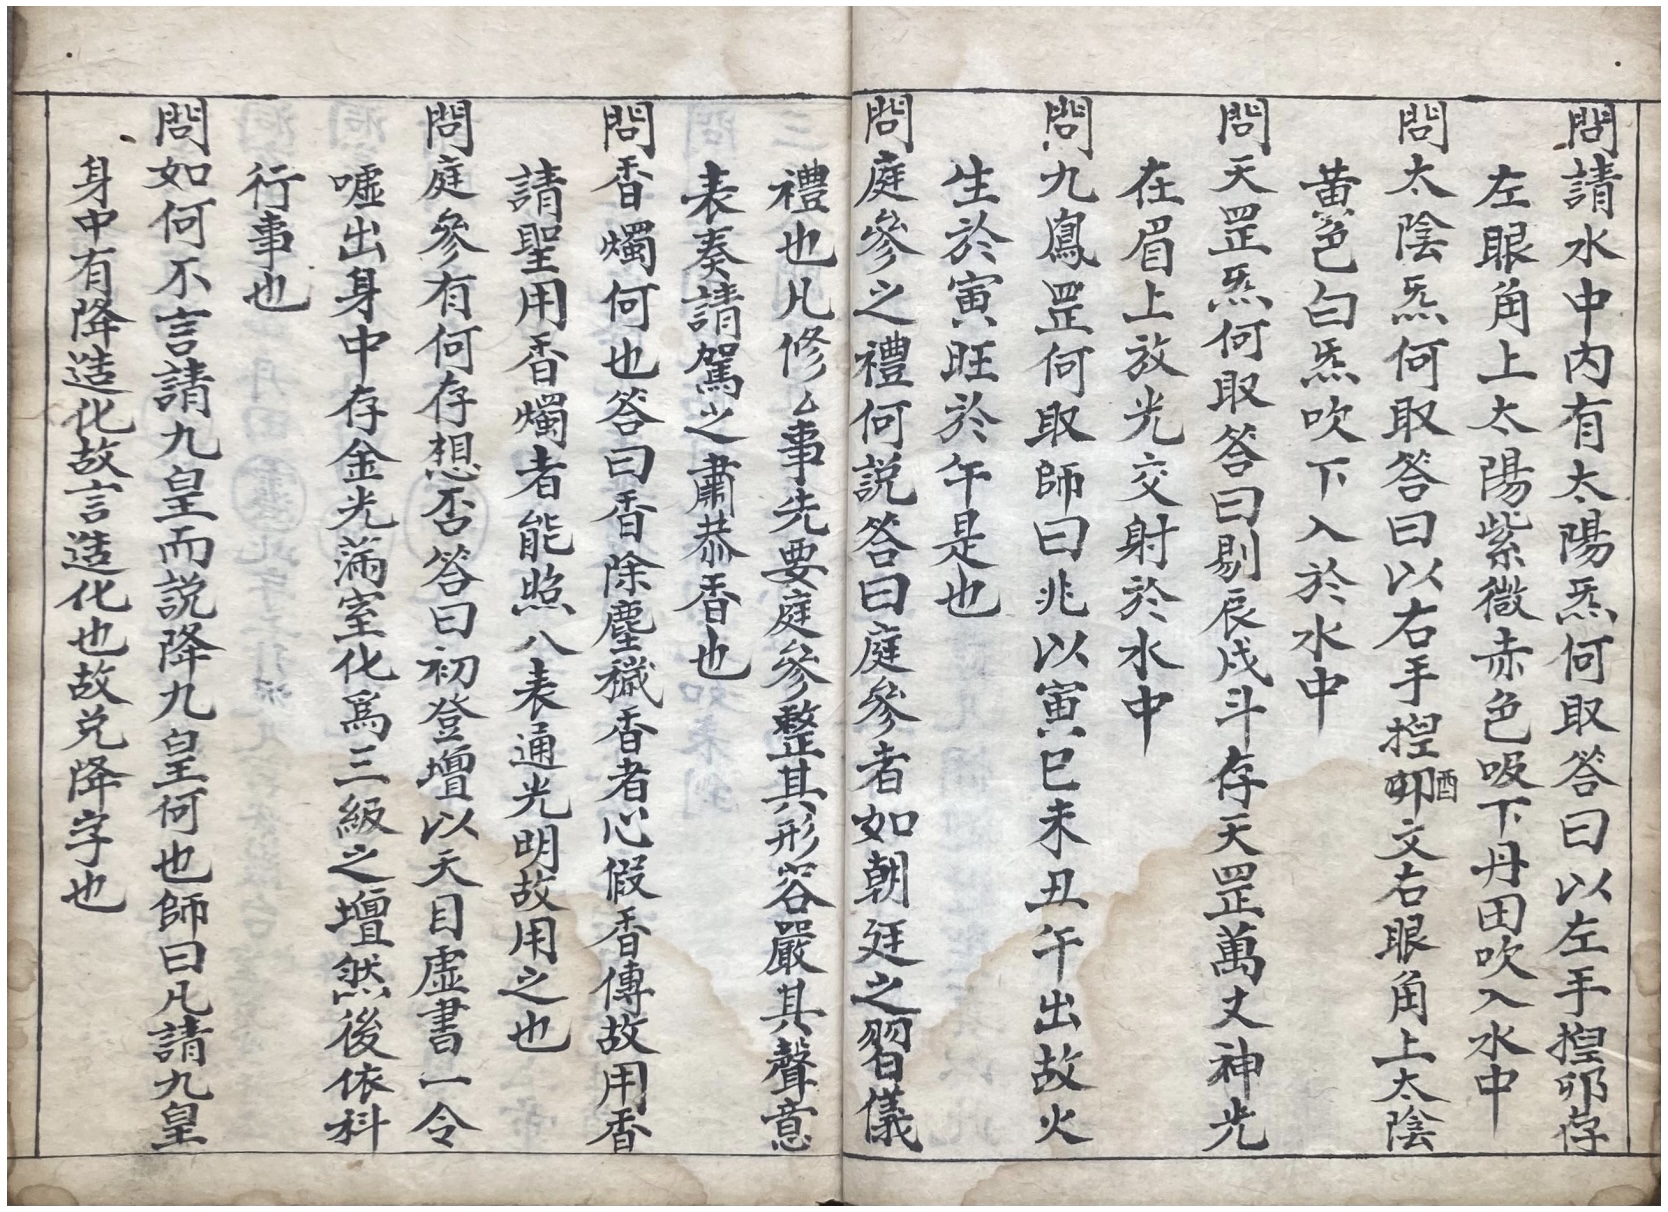 問請水中内有太陽炁何取答曰以左手揑卯存
左眼角上太陽紫微赤色吸下丹田吹入水中
問太陰炁何取答曰以右手揑卯酉文右眼角上太陰
黄色白炁吹下入於水中
問天罡炁何取答曰剔辰戌斗存天罡萬丈神光
在眉上放光交射於水中
問九鳳罡何取師曰兆以寅巳未丑午出故火
生於寅旺於午是也
問庭參之禮何説答曰庭參者如朝廷之習儀
禮也凡修么事先要庭參整其形容嚴其聲意
表奏請駕之肅恭香也
問香燭何也答曰香除塵穢香者心假香傳故用香
請聖用香燭者能照八表通光明故用之也
問庭參有何存想否答曰初登壇以天目虚書一令
噓出身中存金光滿室化爲三級之壇然後依科
行事也
問如何不言請九皇而説降九皇何也師曰凡請九皇
身中有降造化故言造化也故兑降字也